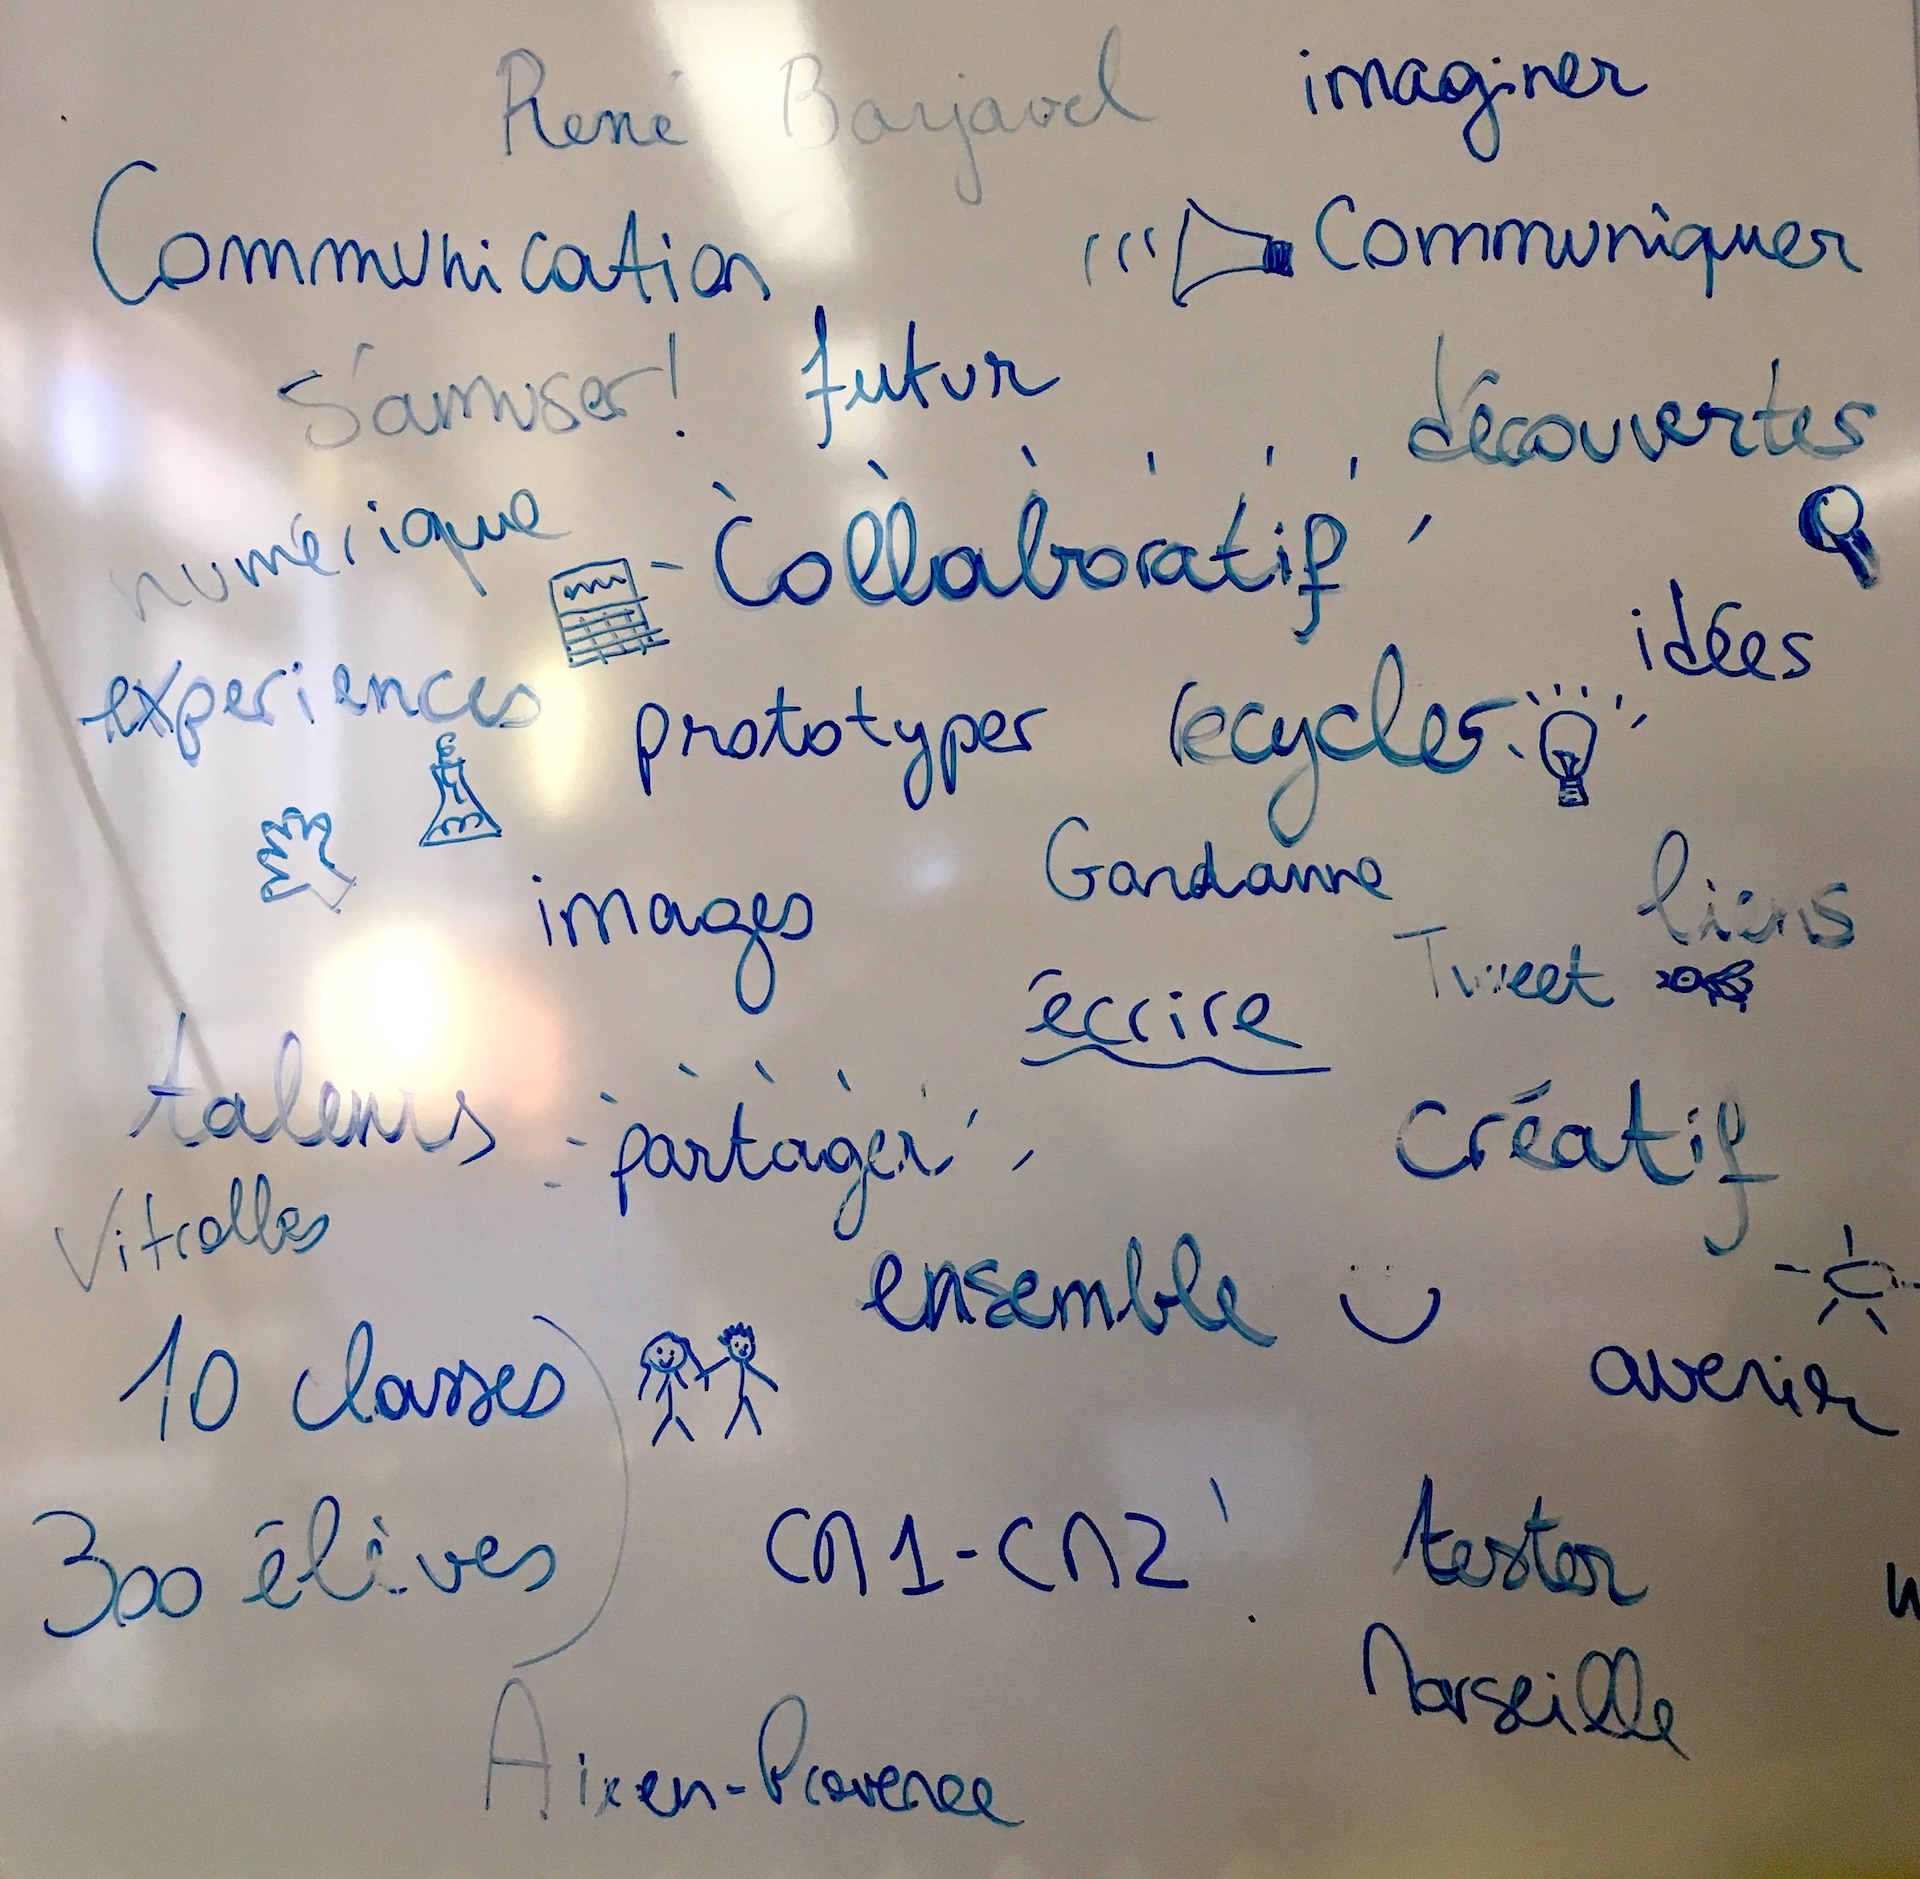 René Barjavel imaginer
Communication Communiquer
S'amuser! futur
découvertes
numérique Collaboratif
idées
experiences prototyper recycler
Gardanne
images liens
Tweet
écrire
talents partager créatif
Vitrolles
ensemble
10 classes avenir
300 élèves CM1-CM2! tester
Marseille
Aix en-Provence